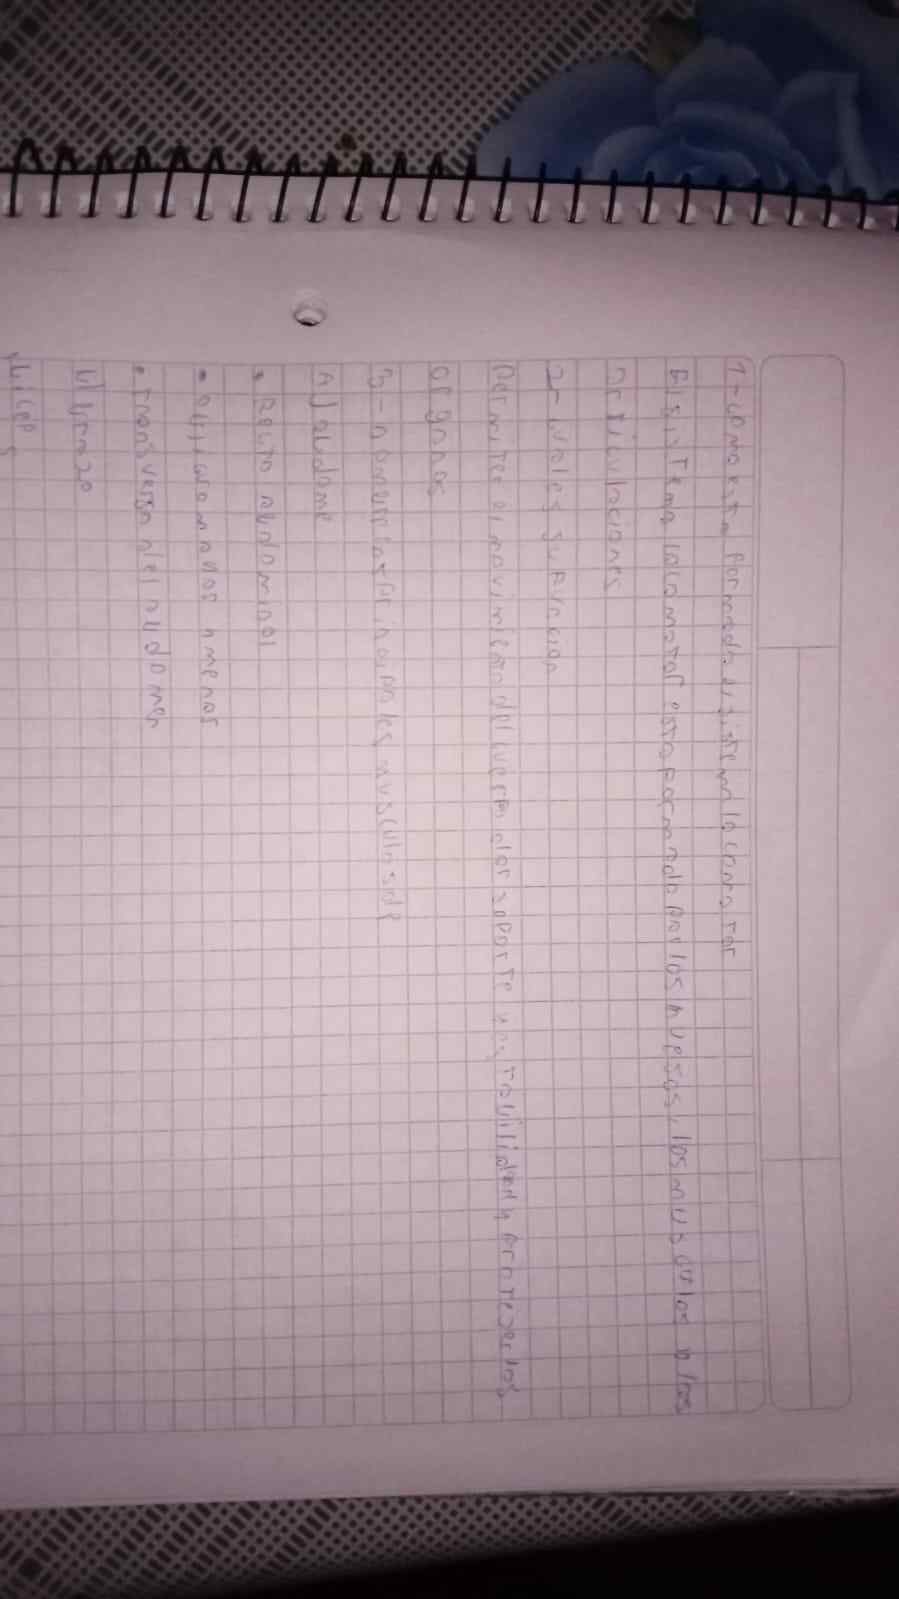 1-como esta formado el sistema locomotor
El sistema locomotor esta formado por los huesos, los musculos y las
articulaciones
2- cual es su funcion
Permitee el movimiento del cuerpo dar soporte y estavilidad y proteger los
organos
3- nombre las principales musculos de
A) abdome
• Recto abdominal
• menor
• transverso del abdomen
b) brazo
biceps